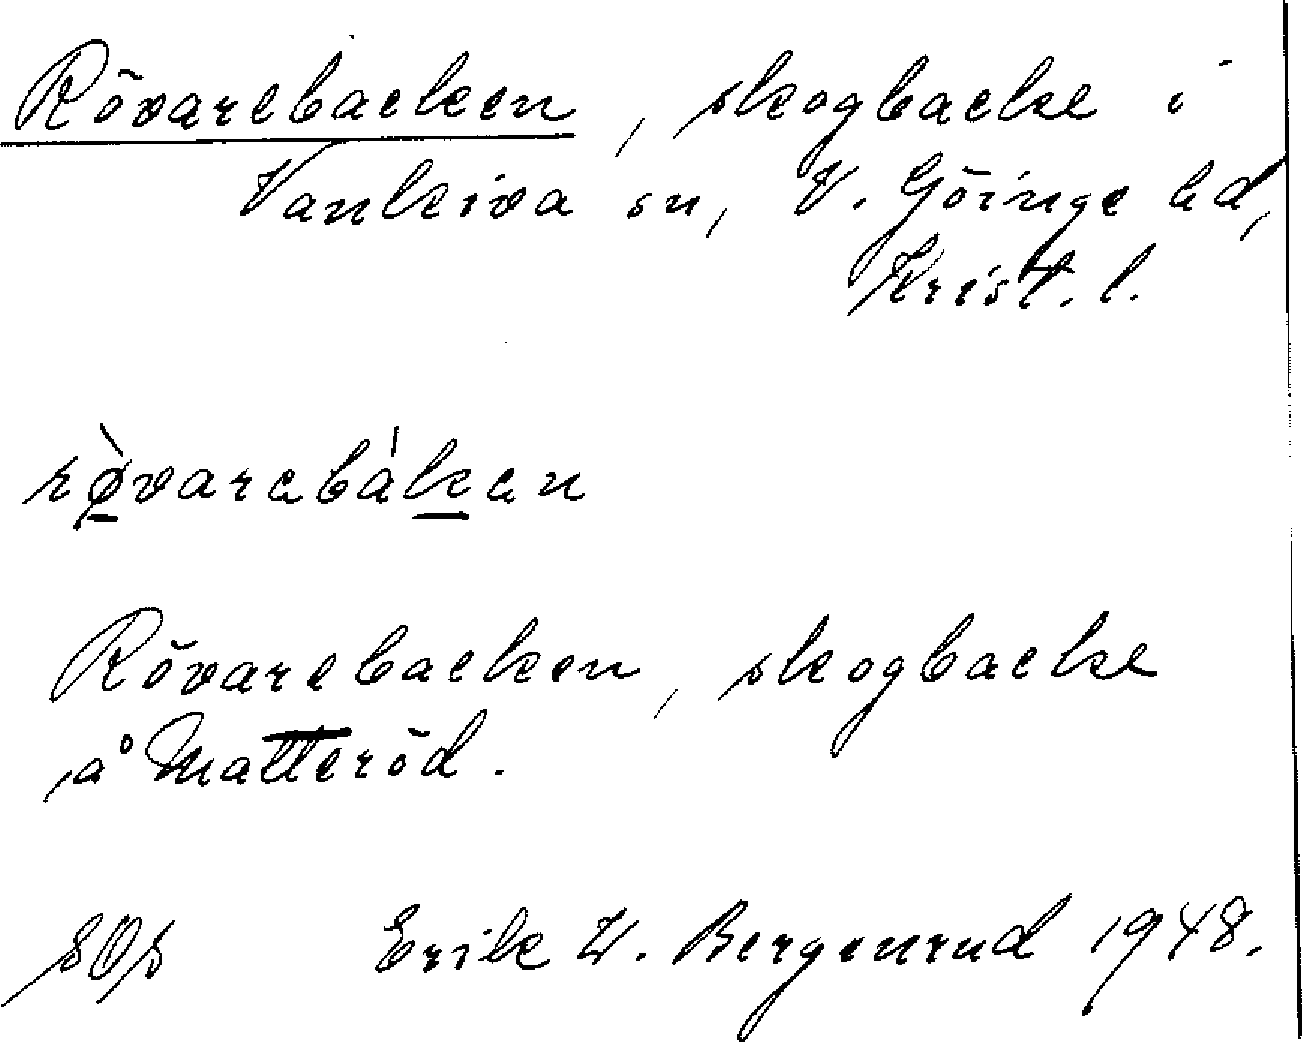 Rövarebacken, skogbacke i
Vankiva sn, V. Göinge hd,
Krist. l.
rø̀varebákan
Rövarebacken, skogbacke
å Matteröd.
Erik W. Bergenrud 1948.